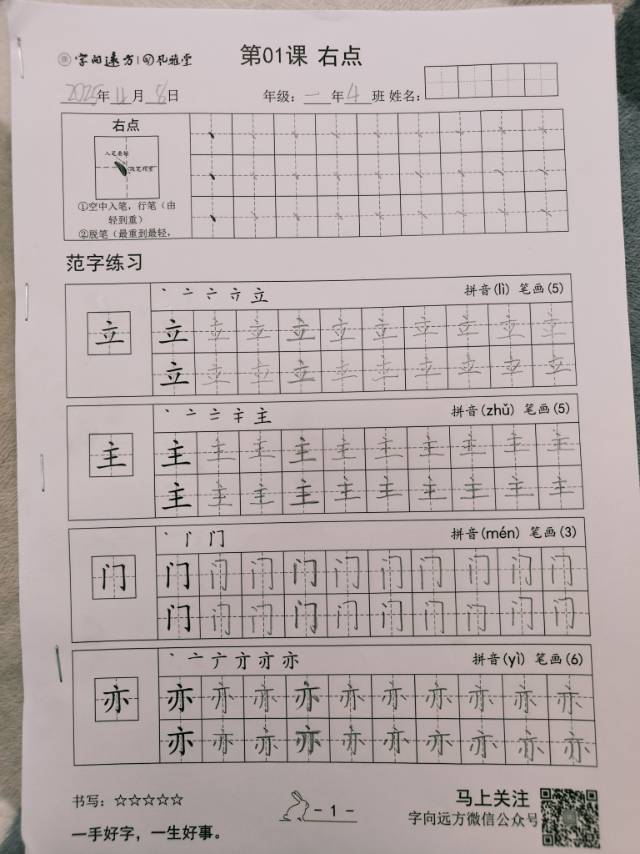 字向远方 孔雅堂 第01课 右点
年11月8日 年级：一年4班 姓名：
右点
①空中入笔，行笔（由
轻到重）
②脱笔（最重到最轻，
范字练习
丶 亠 亠 立 拼音(lì) 笔画(5)
立 立 立 立 立 立 立 立 立 立 立
立 立 立 立 立 立 立 立 立 立
主 拼音(zhǔ) 笔画(5)
主 主 主 主 主 主 主 主 主 主 主
主 主 主 主 主 主 主 主 主 主
丶 门 拼音(mén) 笔画(3)
门 门 门 门 门 门 门 门 门 门 门
门 门 门 门 门 门 门 门 门 门
丶 亠 亦 拼音(yì) 笔画(6)
亦 亦 亦 亦 亦 亦 亦 亦 亦 亦 亦
亦 亦 亦 亦 亦 亦 亦 亦 亦 亦
书写：☆☆☆☆☆ - 1 - 马上关注
一手好字，一生好事。 字向远方微信公众号